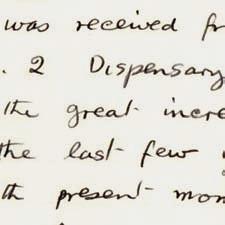 was received fr
. 2 Dispensary
the great incre
the last few
th present mon